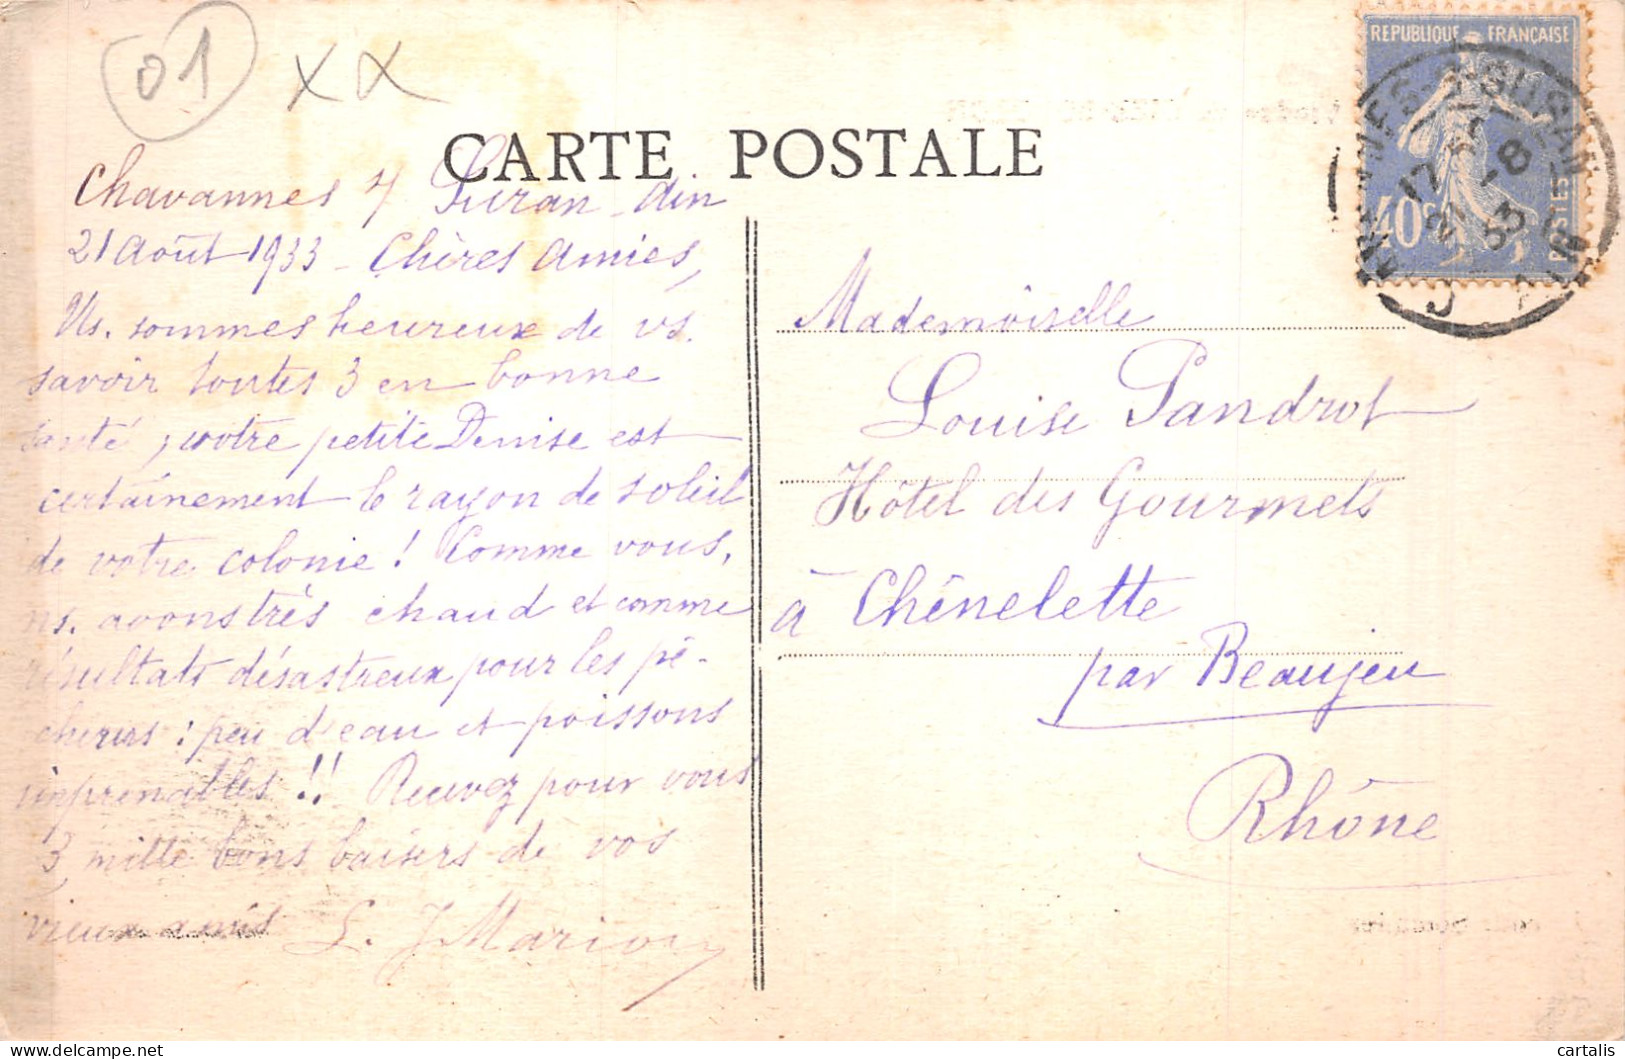 01
CARTE POSTALE
REPUBLIQUE FRANÇAISE
40c
POSTES
17
21 -8
33
AIN
Chavannes s/ Suran Ain
21 Août 1933 - Chères Amies,
Ns. sommes heureux de vs.
savoir toutes 3 en bonne
santé ; votre petite Denise est
certainement le rayon de soleil
de votre colonie ! Comme vous,
ns. avons très chaud et comme
résultats désastreux pour les pê-
cheurs : peu d'eau et poissons
imprenables !! Recevez pour vous
3, mille bons baisers de vos
vieux amis L. J. Marion
Mademoiselle
Louise Pandrot
Hôtel des Gourmets
à Chênelette
par Beaujeu
Rhône
cartalis